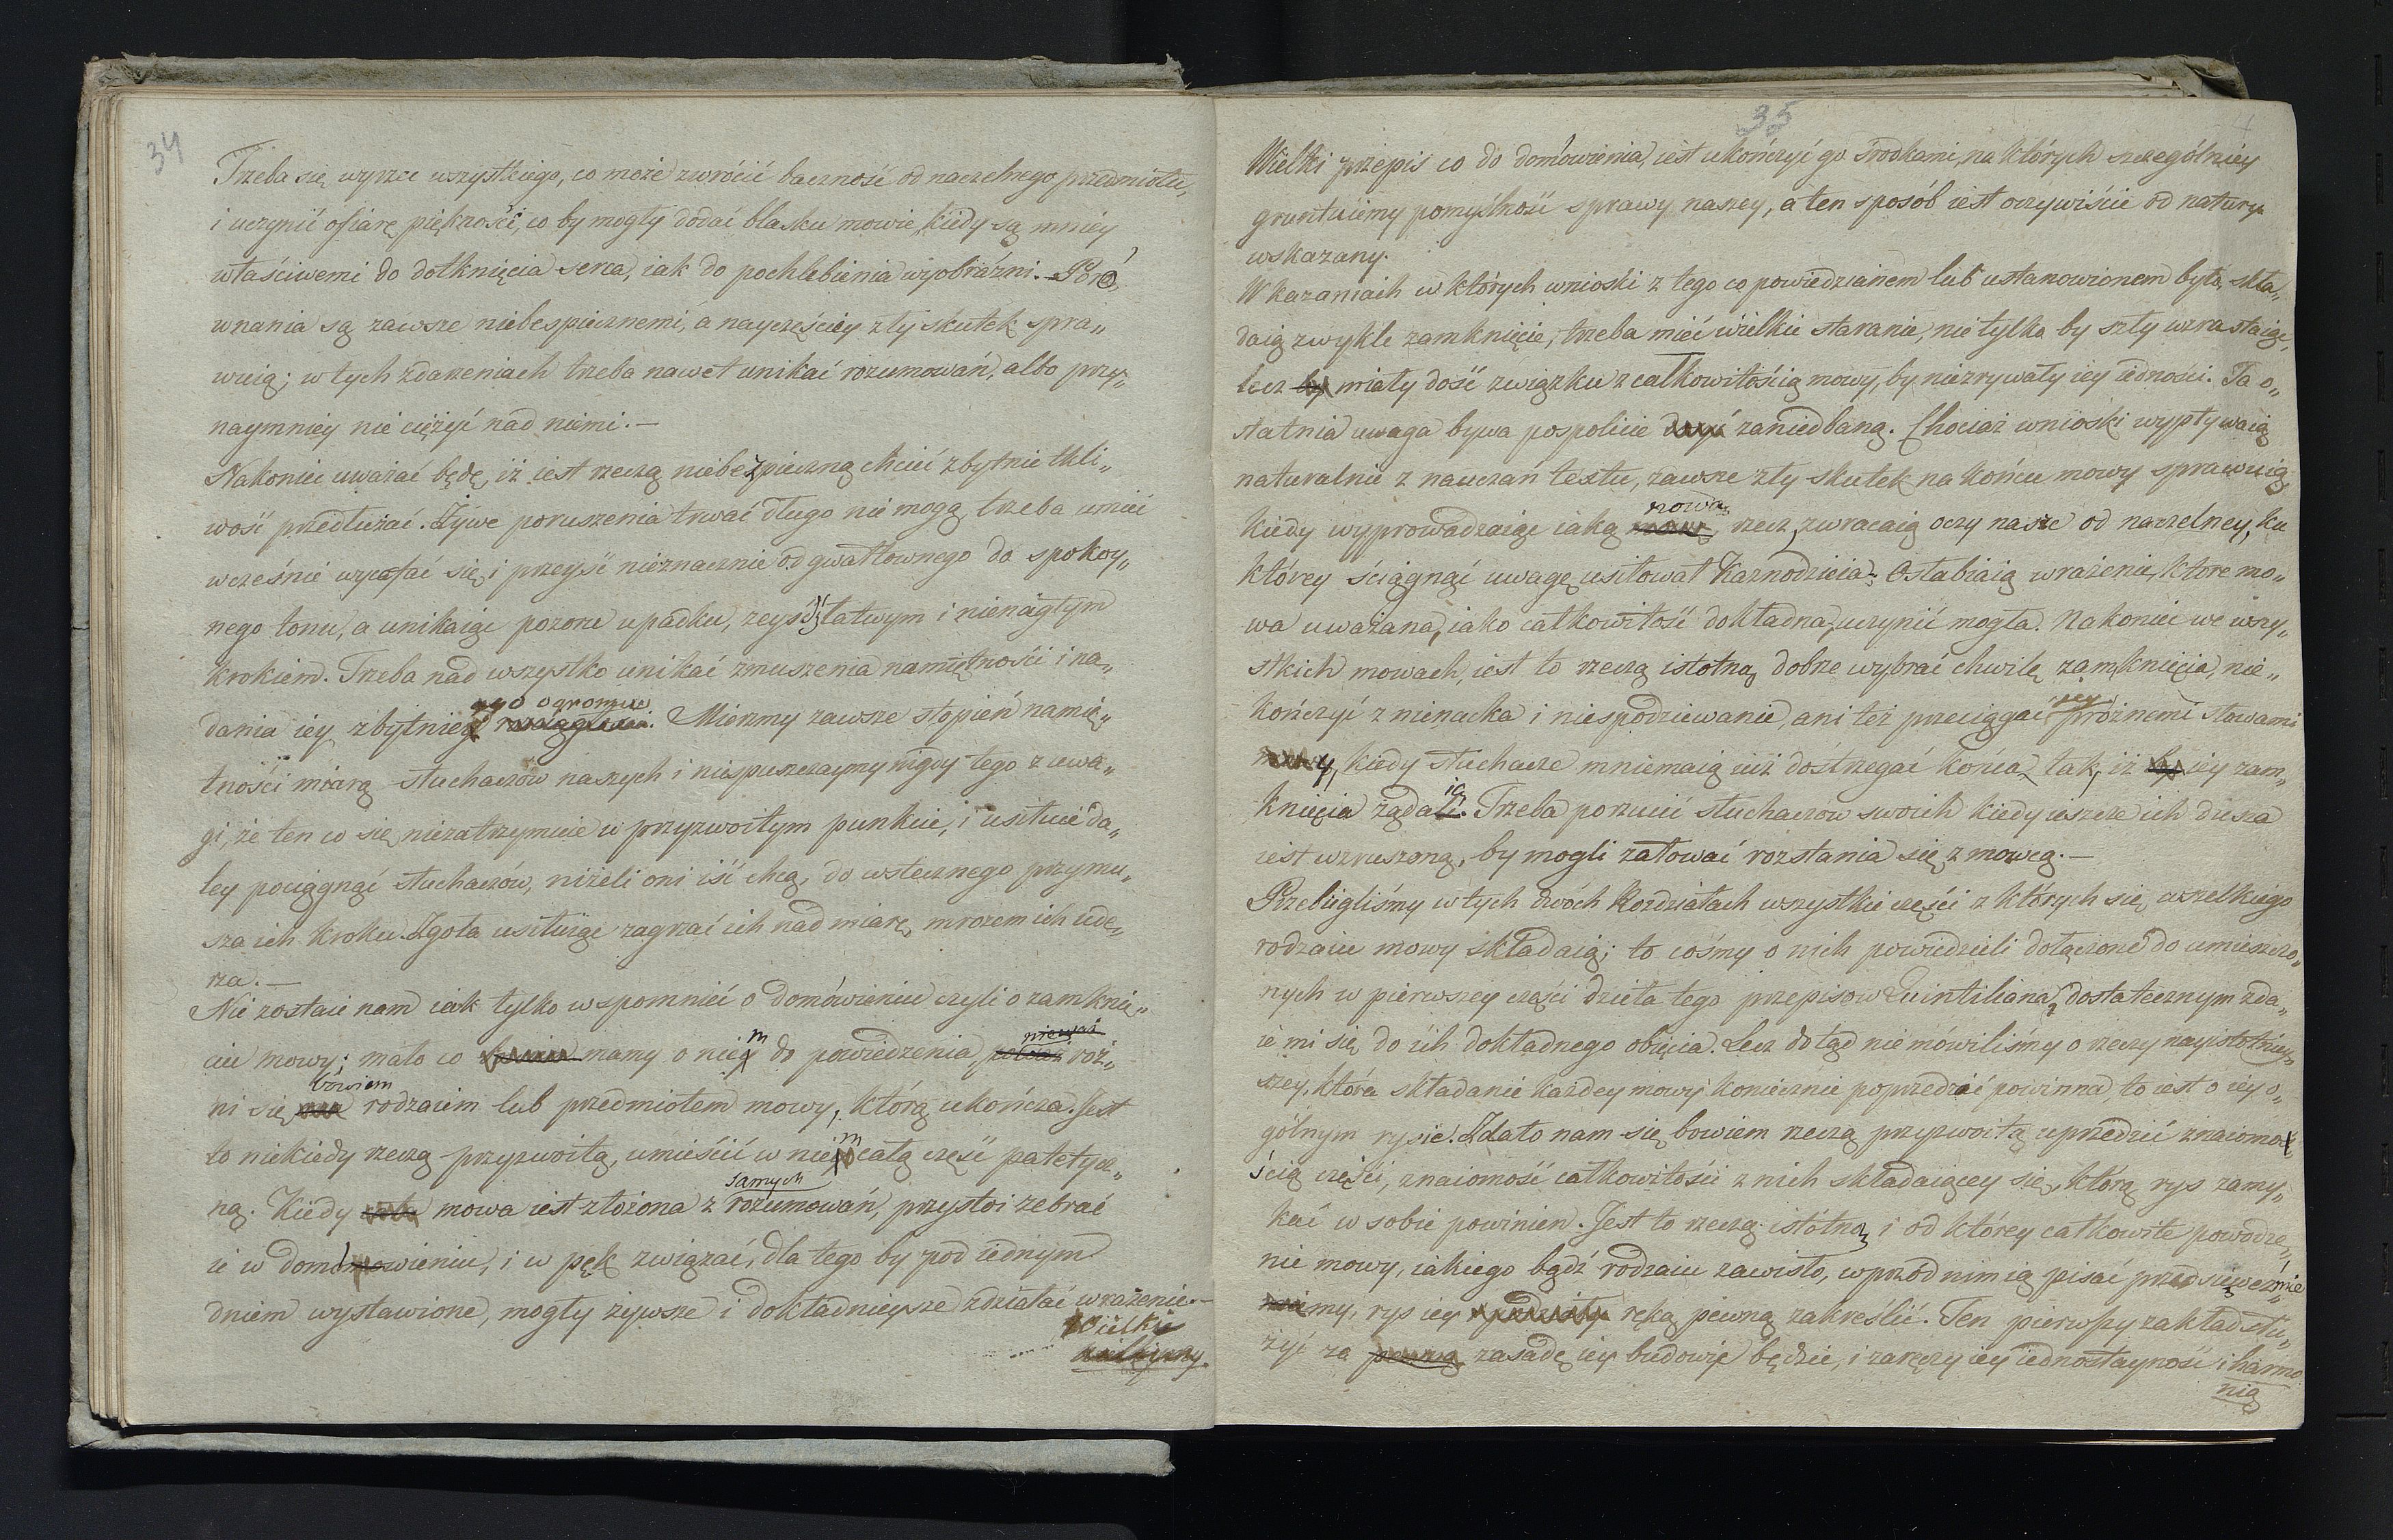 34
Trzeba się wyrzec wszystkiego, co może zwrócić baczność od naczelnego przedmiotu,
i uczynić ofiarę piękności, co by mogły dodać blasku mowie, kiedy są mniéy
właściwemi do dotknięcia serca, iak do pochlebienia wyobraźni. — Poró„
wnania są zawsze niebespiecznemi, a nayczęściéy zły skutek spra„
wuią; w tych zdarzeniach trzeba nawet unikać rozumowań, albo przy„
naymniéy nie ciężyć nad niemi. —
Nakoniec uważać będę, iż iest rzeczą niebezpieczną chcieć zbytnie tkli„
wość przedłużać. Żywe poruszenia trwać długo nie mogą, trzeba umieć
wcześnie wycofać się, i przeyść nieznacznie od gwałtownego do spokoy„
nego tonu, a unikaiąc pozoru upadku, zeyść łatwym i nienagłym
krokiem. Trzeba nad wszystko unikać zmuszenia namiętności i na„
dania iéy zbytniego ogromu. Mierzmy zawsze stopień namię„
tności miarą słuchaczów naszych i niespuszczaymy nigdy tego z uwa„
gi, że ten co się niezatrzymuie w przyzwoitym punkcie, i usiłuie da„
léy pociągnąć słuchaczów, niżeli oni iść chcą, do wstecznego przymu„
sza ich kroku. Zgoła usiłuiąc zagrzać ich nad miarę, mrozem ich ude„
rza. —
Nie zostaie nam iak tylko wspomnieć o domówieniu czyli o zamknię„
ciu mowy; mało co mamy o niem do powiedzenia, róż„
ni się bowiem rodzaiem lub przedmiotem mowy, którą ukończa. Jest
to niekiedy rzeczą przyzwoitą, umieścić w niem całą część patetycz„
ną. Kiedy mowa iest złożona z samych rozumowań, przystoi zebrać
ie w domówieniu, i w pęk związać, dla tego by pod iednym
dniem wystawione, mogły żywsze i dokładnieysze zdziałać wrażenie. —
Wielki
35
Wielki przepis co do domówienia, iest ukończyć go środkami, na których szczególniéy
gruntuiemy pomyślność sprawy naszey, a ten sposób iest oczywiście od natury
wskazany.
W kazaniach w których wnioski z tego co powiedzianem lub ustanowionem było, skła„
daią zwykle zamknięcie, trzeba mieć wielkie staranie, nie tylko by szły wzrastaiąc,
lecz by miały dość związku z całkowitością mowy, by niezrywały iéy iedności. Ta o„
statnia uwaga bywa pospolicie zaniedbaną. Chociaż wnioski wypływaią
naturalnie z nauczań textu, zawsze zły skutek na końcu mowy sprawuią,
kiedy wyprowadzaiąc iaką nową rzecz, zwracaią oczy nasze od naczelney, ku
którey ściągnąć uwagę usiłował Kaznodzieia; Osłabiaią wrażenie, które mo„
wa uważana, iako całkowitość dokładna, uczynić mogła. Nakoniec we wszy„
stkich mowach, iest to rzeczą istotną, dobrze wybrać chwilę zamknięcia, nie„
kończyć z nienacka i niespodziewanie, ani też przeciągać iéy próżnemi słowami
kiedy słuchacze mniemaią iuż dostrzegać końca, tak, iż iéy zam„
knięcia żądaią. Trzeba porzucić słuchaczów swoich kiedy ieszcze ich dusza
iest wzruszoną, by mogli żałować rozstania się z mowcą. —
Przebiegliśmy w tych dwóch Rozdziałach wszystkie części z których się wszelkiego
rodzaiu mowy składaią; to cośmy o nich powiedzieli dołączone do umieszczo„
nych w pierwszéy części dzieła tego przepisów Quintiliana, dostatecznym zda„
ie mi się do ich dokładnego obięcia. Lecz dotąd nie mówiliśmy o rzeczy nayistotniey„
szey, która składanie każdey mowy koniecznie poprzedzać powinna, to iest o iéy o„
gólnym rysie. Zdało nam się bowiem rzeczą przyzwoitą uprzedzić znaiomo„
ścią części, znaiomość całkowitości z nich składaiącey się, którą rys zamy„
kać w sobie powinien. Jest to rzeczą istotną, i od którey całkowite powodze„
nie mowy, iakiego bądź rodzaiu zawisło, wprzód nim ią pisać przedsięweźmie„
my, rys iéy ręką pewną zakreślić. Ten pierwszy zakład słu„
żyć za zasadę iéy budowie będzie, i zaręczy iéy iednostayność i harmo
nią